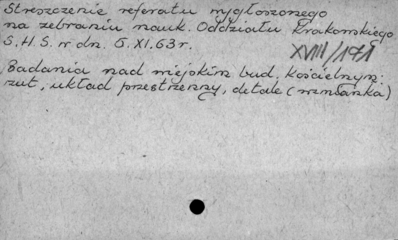 Streszczenie referatu wygłoszonego
na zebraniu nauk. Oddziału Krakowskiego
S.H.S. w dn. 5.XI.63r.
XVIII/171
Badania nad wiejskim bud. kościelnym:
rzut, układ przestrzenny, detale (wzmianka)